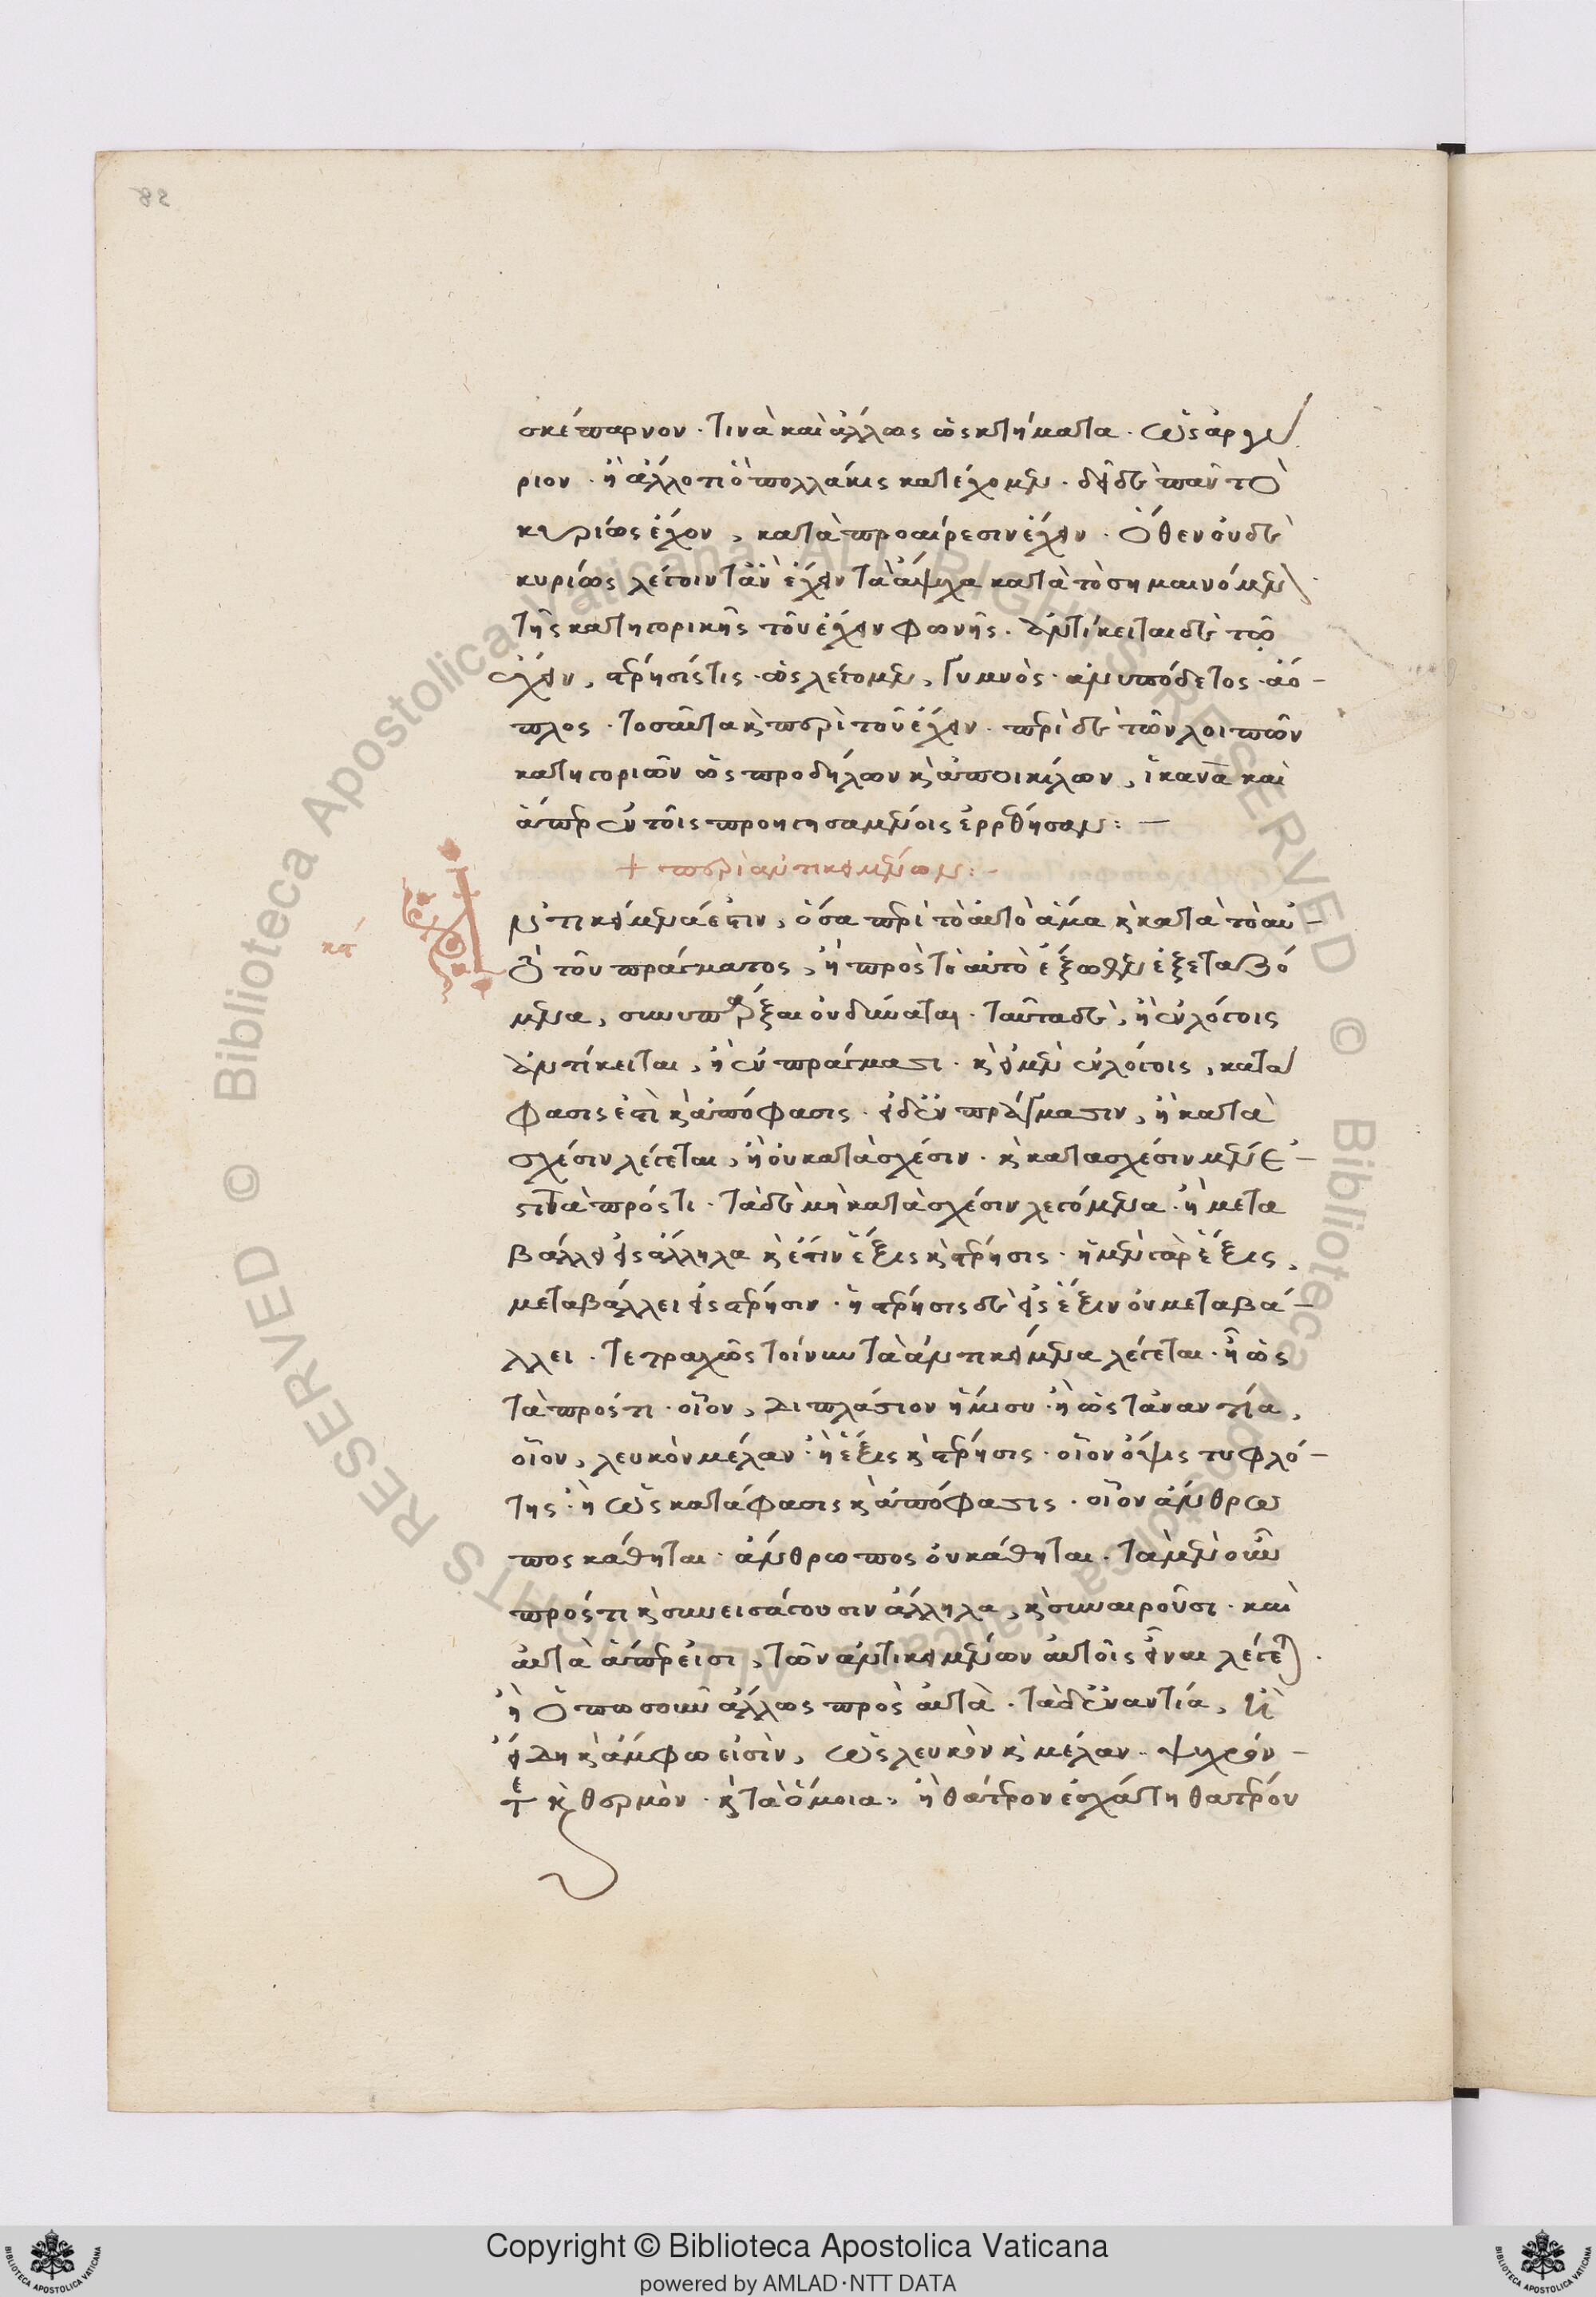 82
σκέπαρνον · τινὰ καὶ ἄλλως ὡς κτήματα · ὡς ἀργύ
ριον · ἢ ἄλλο τι ὃ πολλάκις κατέχομεν · δεῖ δὲ πᾶν τὸ
κυρίως ἔχον, κατὰ προαίρεσιν ἔχειν · ὅθεν οὐδὲ
κυρίως λέγοιντ' ἂν ἔχειν τὰ ἄψυχα κατὰ τὸ σημαινόμενον
τῆς κατηγορικῆς τοῦ ἔχειν φωνῆς · ἀντίκειται δὲ τῷ
ἔχειν, στέρησίς τις · ὡς λέγομεν, γυμνὸς · ἀνυπόδετος · ἄο-
πλος · τοσαῦτα καὶ περὶ τοῦ ἔχειν · περὶ δὲ τῶν λοιπῶν
κατηγοριῶν ὡς προδήλων καὶ ἀποικίλων, ἱκανὰ καὶ
ἅπερ ἐν τοῖς προηγησαμένοις ἐρρέθησαν: —
+ περὶ ἀντικειμένων: -
κγ
Ἀντικείμενά ἐστιν, ὅσα περὶ τὸ αὐτὸ ἅμα καὶ κατὰ τὸ αὐ-
τὸ τοῦ πράγματος, ἢ πρὸς τὸ αὐτὸ ἔξωθεν ἐξεταζό
μενα, συνυπάρξαι οὐ δύναται · ταῦτα δὲ, ἢ ἐν λόγοις
ἀντίκειται, ἢ ἐν πράγμασι · καὶ εἰ μὲν ἐν λόγοις, κατά
φασις ἐστὶ καὶ ἀπόφασις · εἰ δ' ἐν πράγμασιν, ἢ κατὰ
σχέσιν λέγεται, ἢ οὐ κατὰ σχέσιν · καὶ κατὰ σχέσιν μέν ἐ-
στι τὰ πρός τι · τὰ δὲ μὴ κατὰ σχέσιν λεγόμενα · ἢ μετα
βάλλει εἰς ἄλληλα καὶ ἔστιν ἕξις καὶ στέρησις · ἡ μὲν γὰρ ἕξις,
μεταβάλλει εἰς στέρησιν · ἡ στέρησις δὲ εἰς ἕξιν οὐ μεταβά-
λλει · τετραχῶς τοίνυν τὰ ἀντικείμενα λέγεται · ἢ ὡς
τὰ πρός τι · οἷον, διπλάσιον ἥμισυ · ἢ ὡς τἀναντία,
οἷον, λευκὸν μέλαν · ἢ ἕξις καὶ στέρησις · οἷον ὄψις τυφλό-
της · ἢ ὡς κατάφασις καὶ ἀπόφασις · οἷον ἄνθρω
πος κάθηται · ἄνθρωπος οὐ κάθηται · τὰ μὲν οὖν
πρός τι καὶ συνεισάγουσιν ἄλληλα, καὶ συναιροῦσι · καὶ
αὐτὰ ἅπερ εἰσι, τῶν ἀντικειμένων αὐτοῖς εἶναι λέγεται ·
ἢ ὁπωσοῦν ἄλλως πρὸς αὐτὰ · τὰ δ' ἐναντία, ἢ
εἴδη καὶ ἄμφω εἰσὶν, ὡς λευκὸν καὶ μέλαν · ψυχρόν-
τε καὶ θερμὸν · καὶ τὰ ὅμοια · ἢ θάτερον ἐσχάτη θατέρου
Copyright © Biblioteca Apostolica Vaticana
powered by AMLAD·NTT DATA